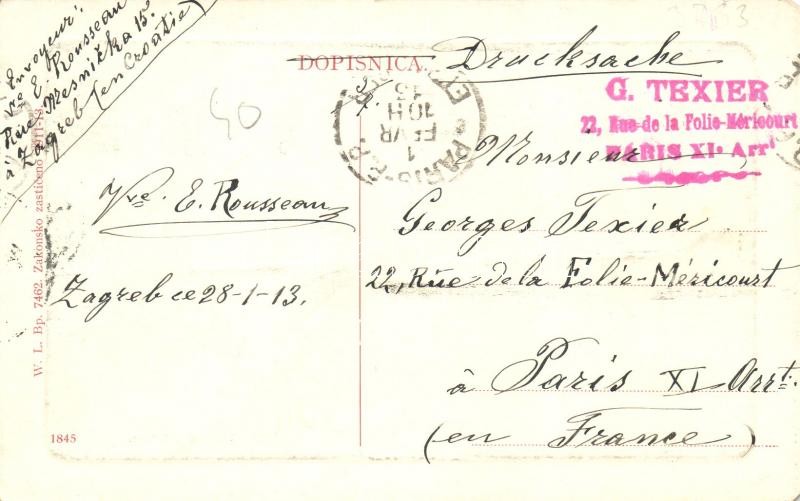 Envoyeur:
Vve E. Rousseau
Rue, Mesnička 15a
à Zagreb (en Croatie)
DOPISNICA.
Drucksache
40
G. TEXIER
22, Rue de la Folie-Méricourt
PARIS XIe Arrt
PARIS
1
FEVR
10H
13
Vve E. Rousseau
Zagreb ce 28-1-13.
Monsieur
Georges Texier
22, Rüe de la Folie-Méricourt
à Paris XI Arrt.
(en France)
W. L. Bp. 7462. Zakonsko zastićeno 1911-13
1845